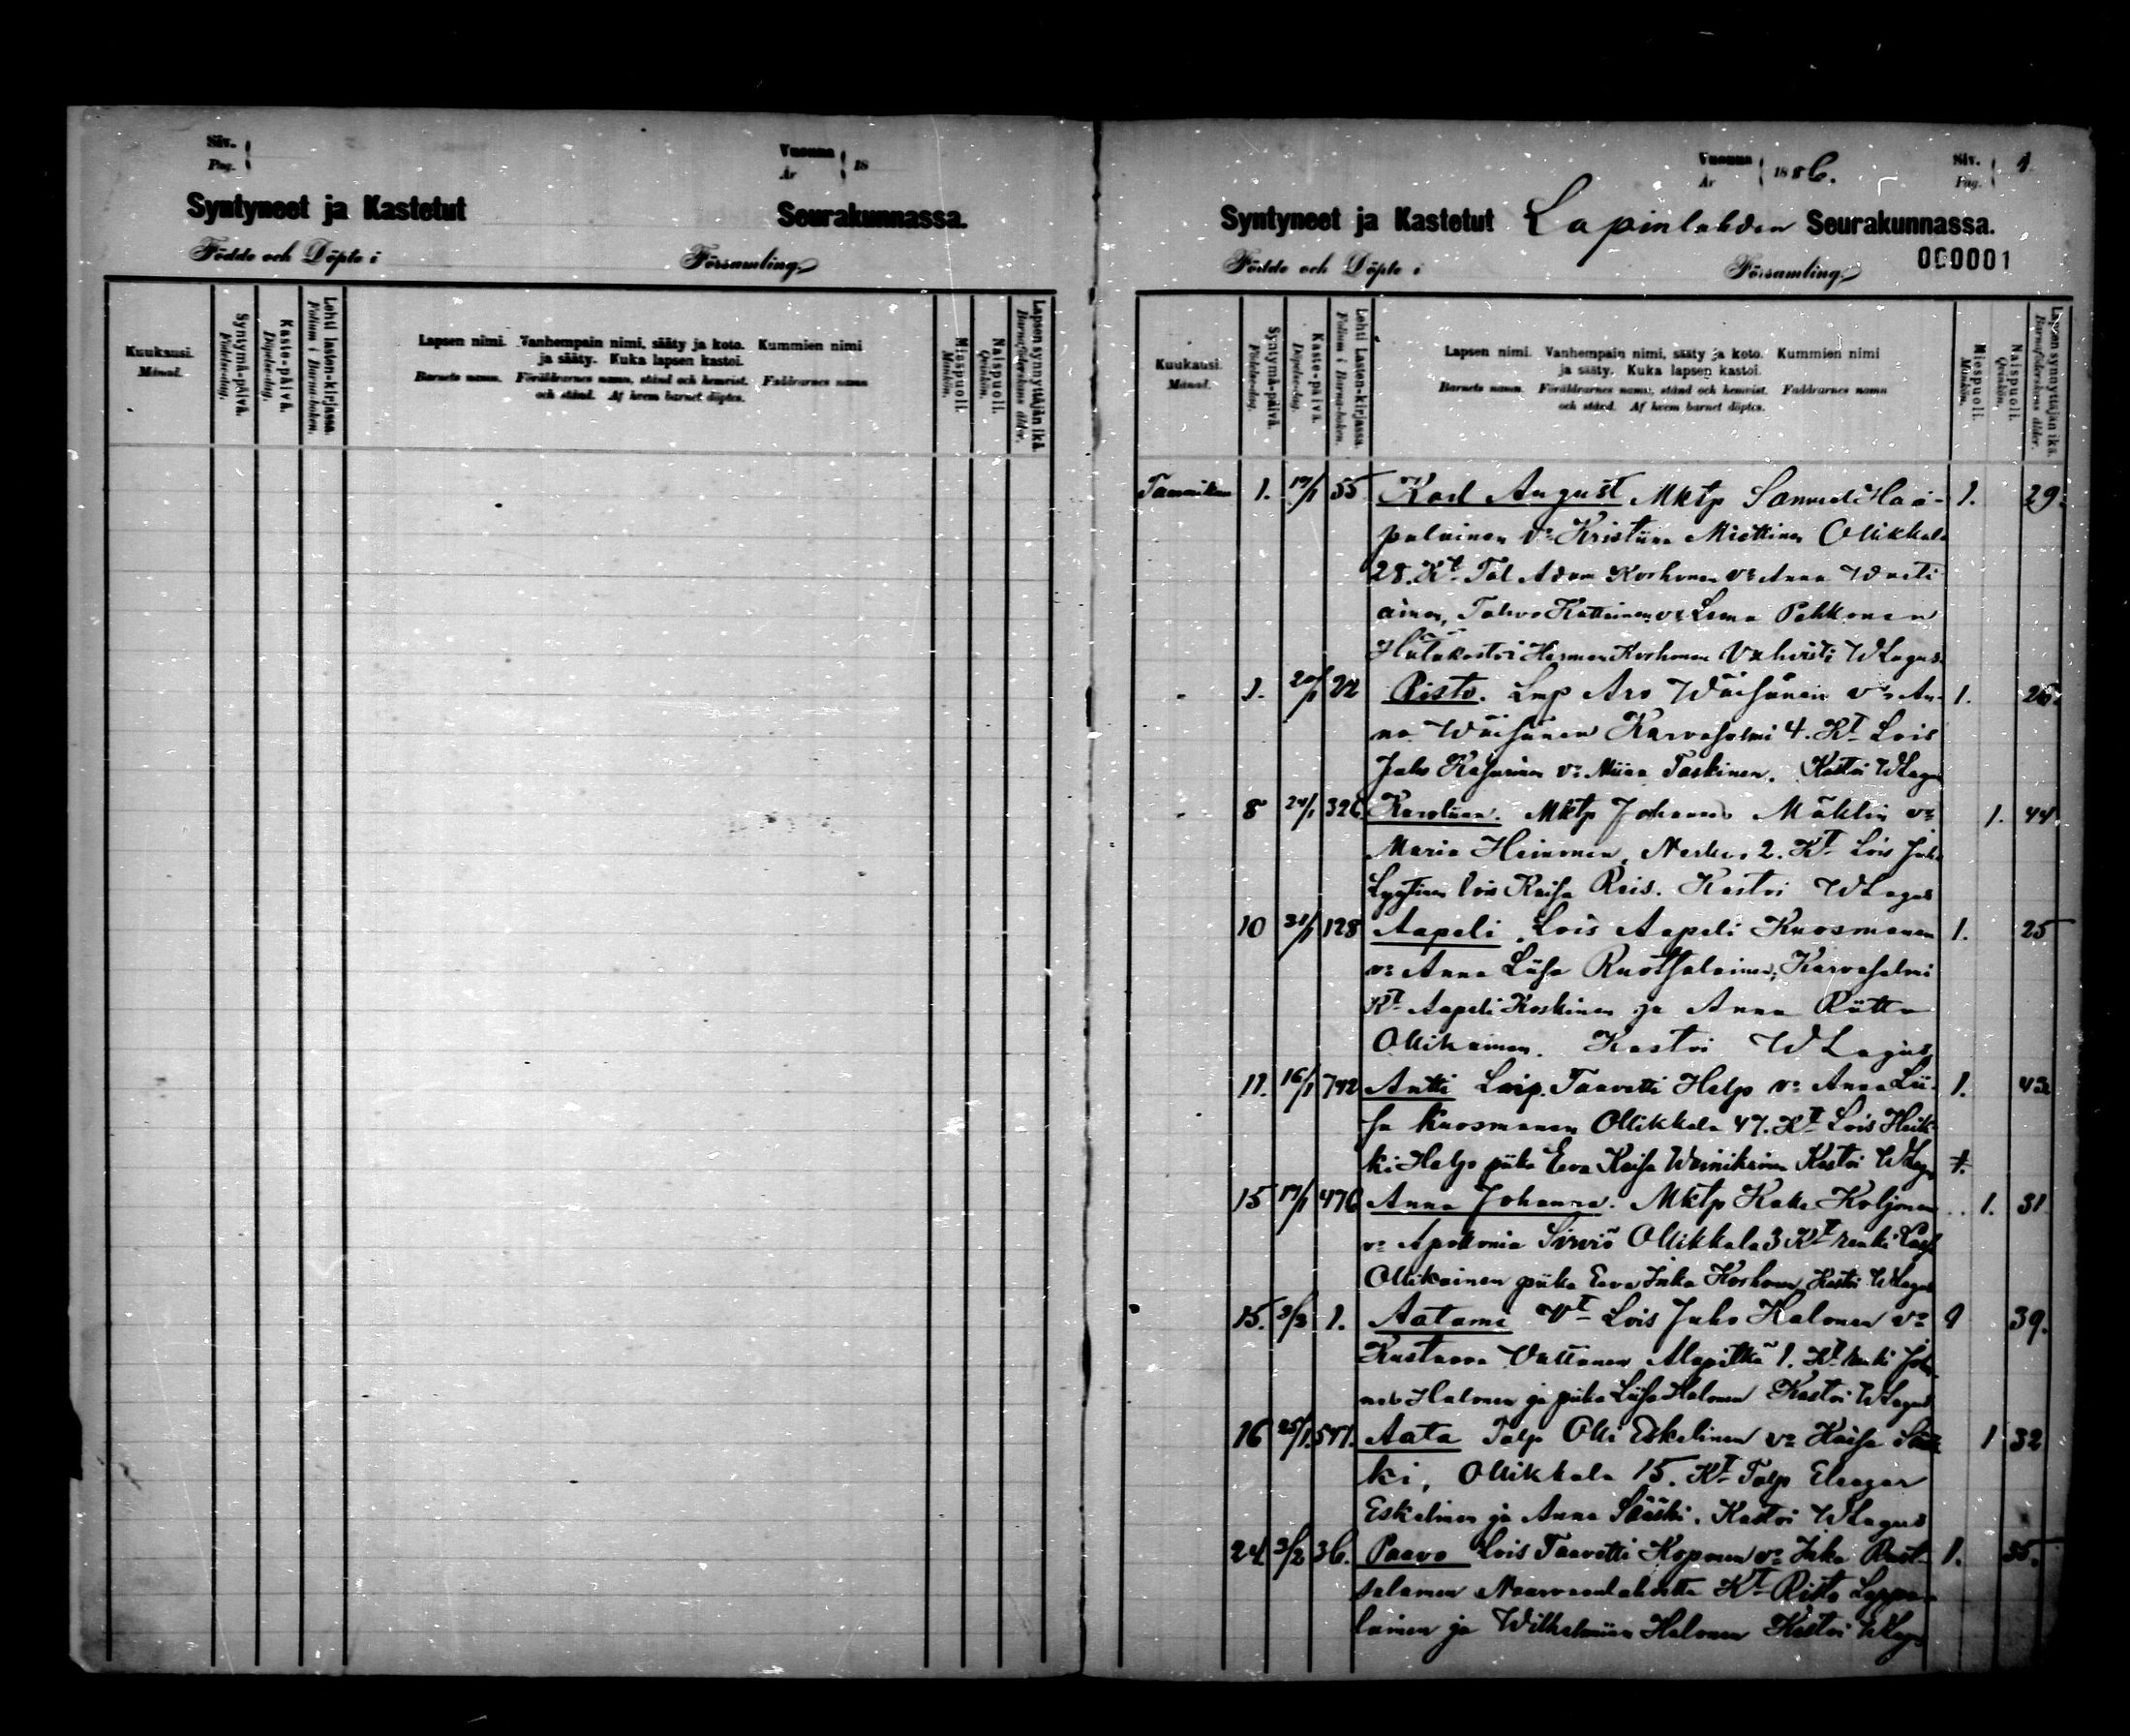 Siv.
Pag.
Vuonna
År
18
Syntyneet ja Kastetut Seurakunnassa.
Födde och Döpte i Församling
Kuukausi.
Månad.
Syntymä-päivä.
Födelse-dag.
Kaste-päivä.
Döpelse-dag.
Lehti lasten-kirjassa.
Folium i Barna-boken.
Lapsen nimi. Vanhempain nimi, sääty ja koto. Kummien nimi
ja sääty. Kuka lapsen kastoi.
Barnets namn. Föräldrarnes namn, stånd och hemvist. Faddrarnes namn
och stånd. Af hvem barnet döptes.
Miespuoli.
Mankön.
Naispuoli.
Qvinkön.
Lapsen synnyttäjän ikä.
Barnaföderskans ålder.
Vuonna
År
1886.
Siv.
Pag.
1
Syntyneet ja Kastetut Lapinlahden Seurakunnassa.
Födde och Döpte i Församling
000001
Kuukausi.
Månad.
Syntymä-päivä.
Födelse-dag.
Kaste-päivä.
Döpelse-dag.
Lehti Lasten-kirjassa.
Folium i Barna-boken.
Lapsen nimi. Vanhempain nimi, sääty ja koto. Kummien nimi
ja sääty. Kuka lapsen kastoi.
Barnets namn. Föräldrarnes namn, stånd och hemvist. Faddrarnes namn
och stånd. Af hvem barnet döptes.
Miespuoli.
Mankön.
Naispuoli.
Qvinkön.
Lapsen synnyttäjän ikä.
Barnaföderskans ålder.
Tammikuu 1. 17/1 55 Karl August Mktp Samuel Haa- 1. 29.
palainen vo Kristiina Miettinen Ollikkala
28. Kt Tal Adam Korhonen vo Anna Wuoti
ainen, Tahvo Kattainen vo Leena Pehkonen
Hätäkastoi Herman Korhonen Vahvisti WLagus
1. 20/1 22 Risto. Lmp Aro Wäisänen vo An- 1. 26.
na Wäisänen Karvasalmi 4. Kt Lois
Juho Kasurinen vo Miina Taskinen. Kastoi WLagus
8 24/1 326 Karoliina. Mktp Johannes Mäklin vo 1. 44
Maria Heinonen, Nerko 2. Kt Lois Juho
Lyytinen Lois Kaisa Reis. Kastoi WLagus
10 31/1 128 Aapeli. Lois Aapeli Kuosmanen 1. 25
vo Anna Liisa Ruotsalainen, Karvasalmi
Kt Aapeli Koskinen ja Anna Riitta
Ollikainen. Kastoi WLagus
11. 16/1 742 Antti Loip. Taavetti Help vo Anna Lii- 1. 43
sa Kuosmanen Ollikkala 47. Kt Lois Heik-
ki Help piika Eeva Kaisa Wainikainen Kastoi WLagus
15 17/1 476 Anna Johanna. Mktp Kalle Koljonen 1. 31
vo Apollonia Sirviö Ollikkala 3 Kt renki
Ollikainen piika Eeva Inka Korhonen Kastoi WLagus
15. 3/2 1. Aatami Vt Lois Juho Halonen vo 1 39.
Kustaava Vattanen Alapitkä 1. Kt renki Joha
nes Halonen ja piika Liisa Halonen Kastoi WLagus
16 25/1 571. Aata Talp Olli Eskelinen vo Kaisa Sääs 1 32
ki, Ollikkala 15. Kt Talp Eleazar
Eskelinen ja Anna Sääski. Kastoi WLagus
24 3/2 36. Paavo Lois Taavetti Koponen vo Inka Ruot- 1. 35.
salainen Naarvanlahdelta Kt Risto Leppä-
lainen ja Wilhelmiina Halonen Kastoi WLagus